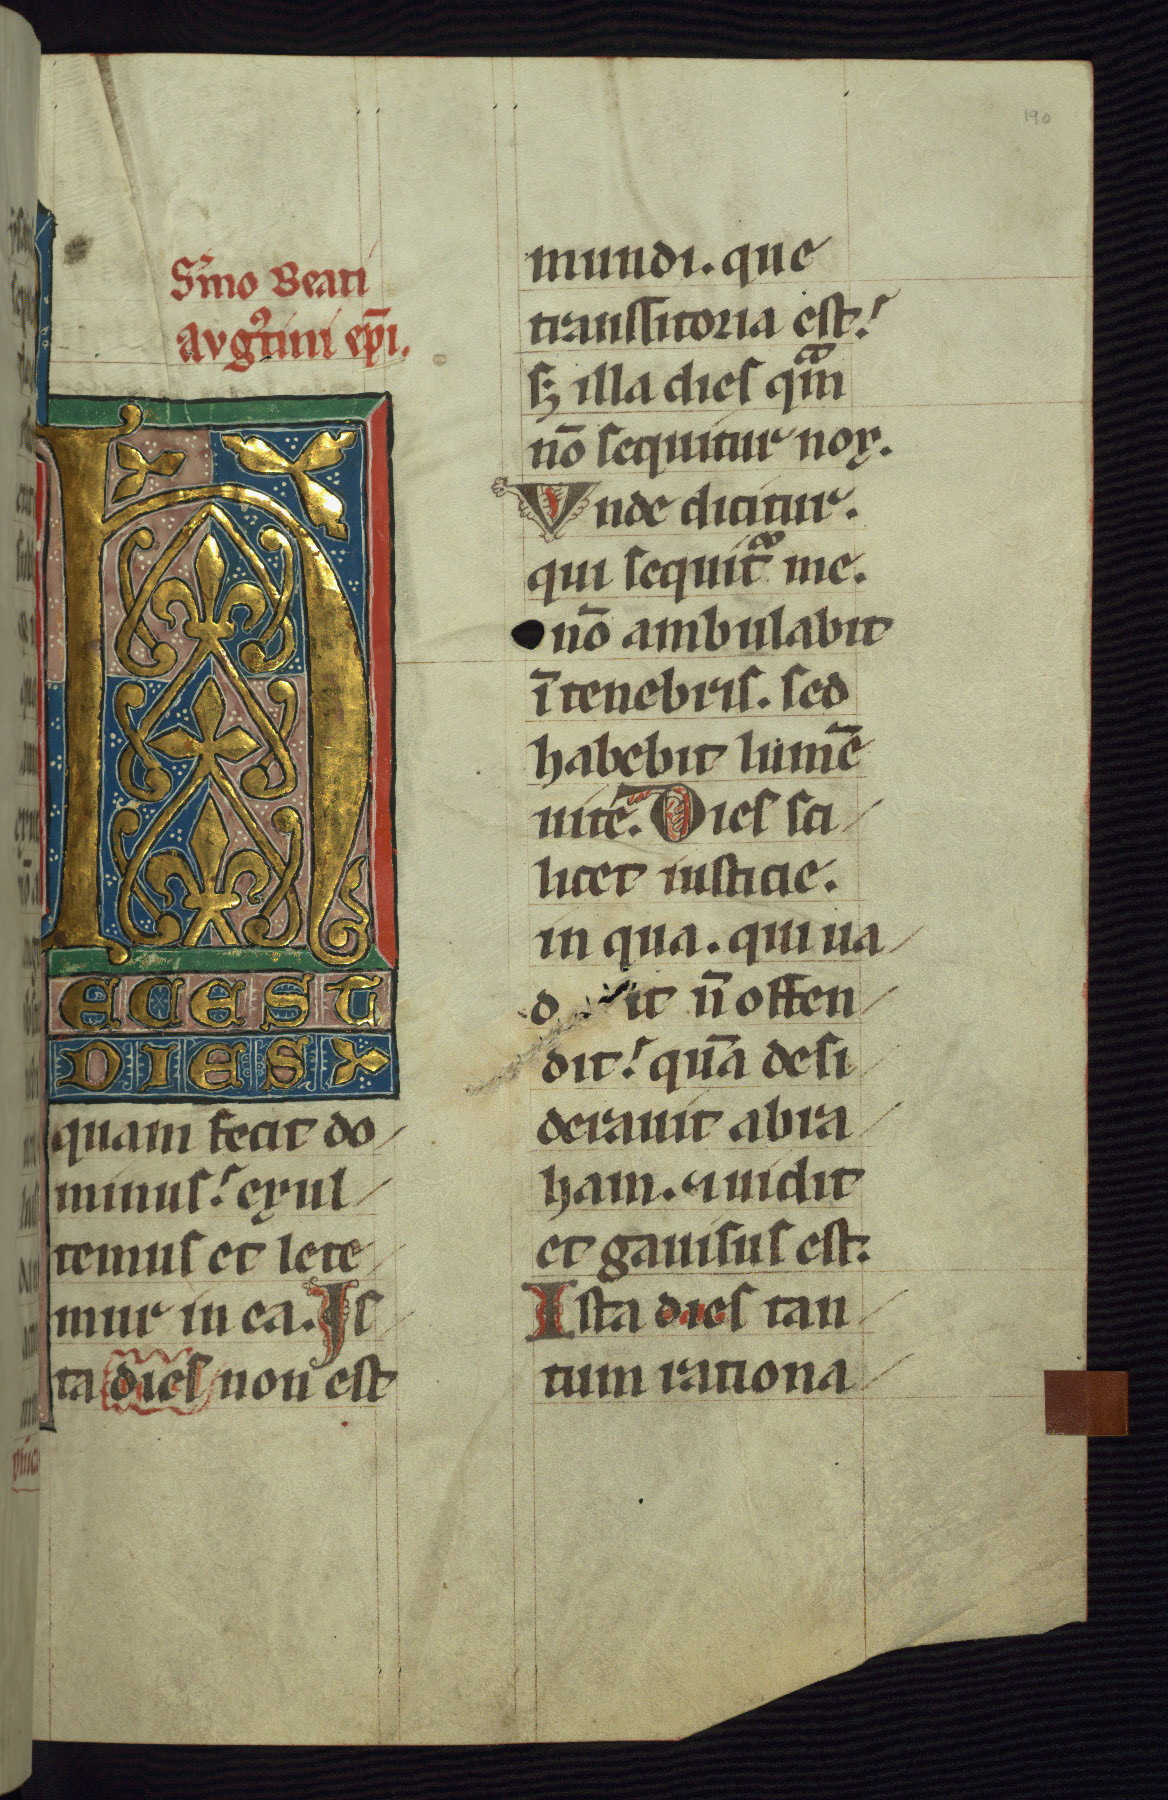 190
S'mo Beati
avg'tini ep̄i.
H
EC EST
DIES
quam fecit do
minus. exul
temus et lete
mur in ea. Is
ta dies non est
mundi. que
transitoria est.
sꝫ illa dies qᵃm
nō sequitur nox.
Vnde dicitur.
qui sequit᷑ me.
nō ambulabit
ī tenebris. sed
habebit lumē
uite. Dies sci
licet iusticie.
in qua. qui ua
d it n̄ offen
dit. quā desi
derauit abra
ham. ⁊ uidit
et gauisus est.
Ista dies tan
tum rationa